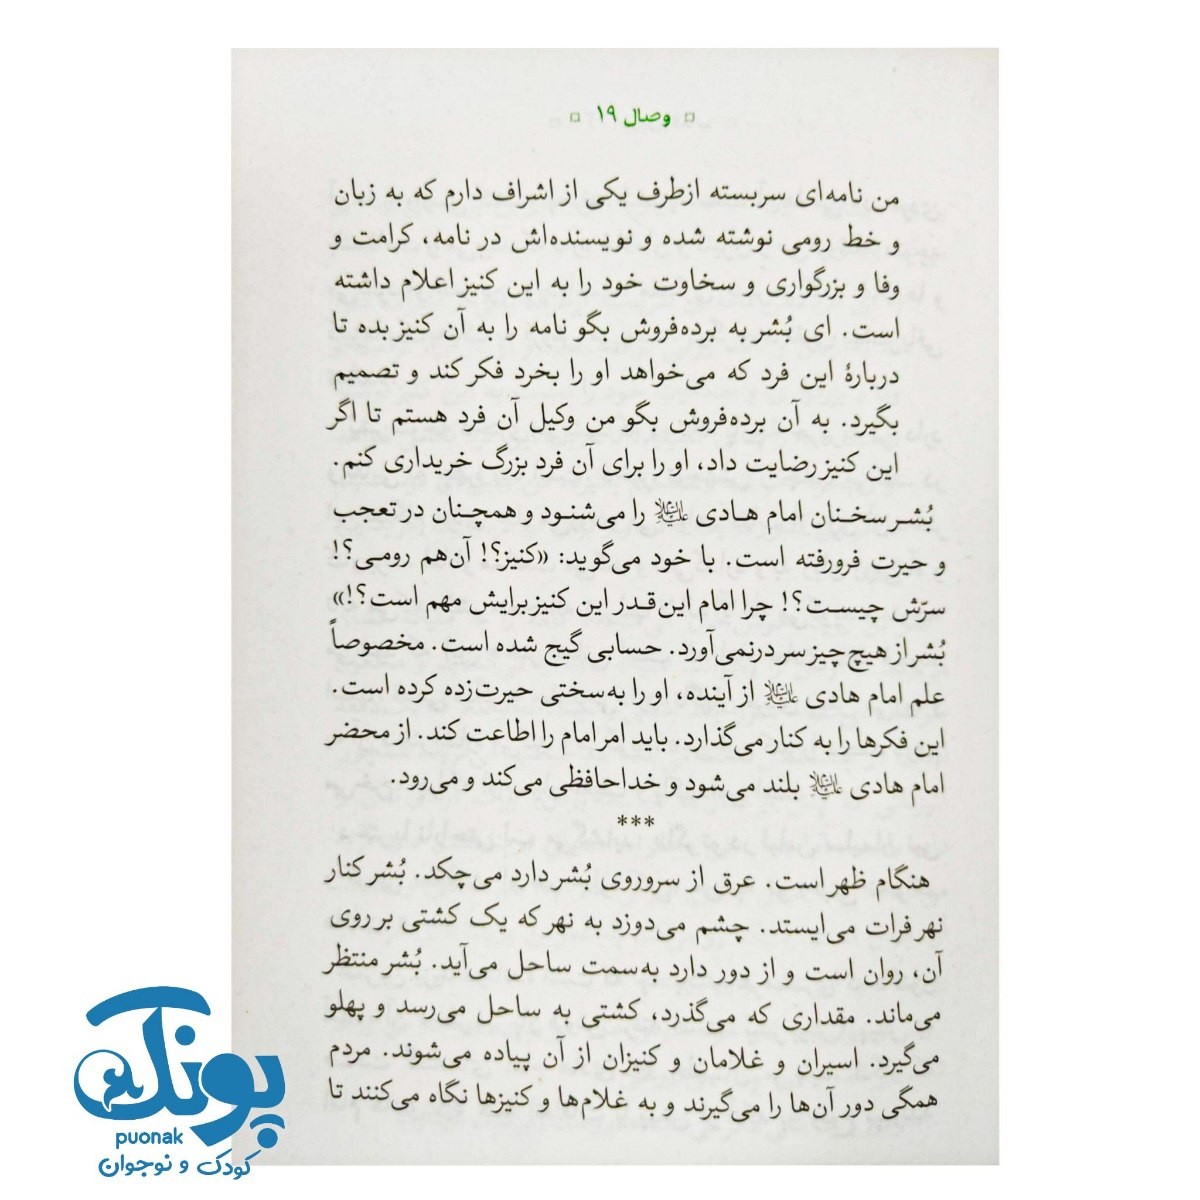 وصال ۱۹
من نامه‌ای سربسته ازطرف یکی از اشراف دارم که به زبان
و خط رومی نوشته شده و نویسنده‌اش در نامه، کرامت و
وفا و بزرگواری و سخاوت خود را به این کنیز اعلام داشته
است. ای بُشر به برده‌فروش بگو نامه را به آن کنیز بده تا
دربارهٔ این فرد که می‌خواهد او را بخرد فکر کند و تصمیم
بگیرد. به آن برده‌فروش بگو من وکیل آن فرد هستم تا اگر
این کنیز رضایت داد، او را برای آن فرد بزرگ خریداری کنم.
بُشر سخنان امام هادی علیه‌السلام را می‌شنود و همچنان در تعجب
و حیرت فرورفته است. با خود می‌گوید: «کنیز؟! آن‌هم رومی؟!
سرّش چیست؟! چرا امام این‌قدر این کنیز برایش مهم است؟!»
بُشر از هیچ چیز سر درنمی‌آورد. حسابی گیج شده است. مخصوصاً
علم امام هادی علیه‌السلام از آینده، او را به‌سختی حیرت‌زده کرده است.
این فکرها را به کنار می‌گذارد. باید امر امام را اطاعت کند. از محضر
امام هادی علیه‌السلام بلند می‌شود و خداحافظی می‌کند و می‌رود.
***
هنگام ظهر است. عرق از سروروی بُشر دارد می‌چکد. بُشر کنار
نهر فرات می‌ایستد. چشم می‌دوزد به نهر که یک کشتی بر روی
آن، روان است و از دور دارد به‌سمت ساحل می‌آید. بُشر منتظر
می‌ماند. مقداری که می‌گذرد، کشتی به ساحل می‌رسد و پهلو
می‌گیرد. اسیران و غلامان و کنیزان از آن پیاده می‌شوند. مردم
همگی دور آن‌ها را می‌گیرند و به غلام‌ها و کنیزها نگاه می‌کنند تا
پونک
puonak
کودک و نوجوان